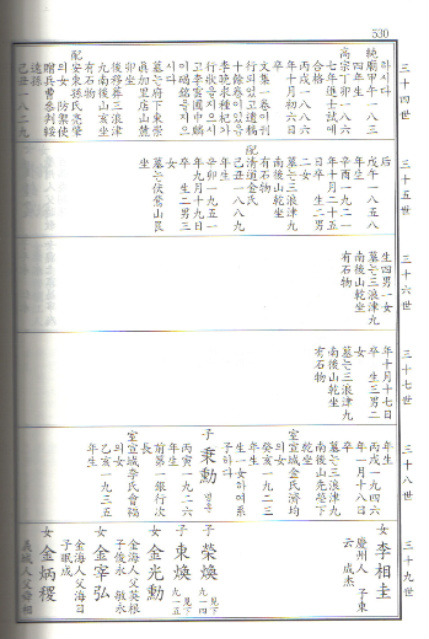 530
三十四世
하시다
純廟甲午一八三
四年生
高宗丁卯一八六
七年進士試에
合格
丙戌一八八六
年十月初六日
卒
文集一卷이刊
行되있고遺稿
十餘卷이있음
李晩求種杞가
行狀을지으시
고李雲圃中麟
이碣銘을지으
시다
墓는府下東崇
眞加里店山麓
卯坐
後移葬三浪津
九南後山亥坐
有石物
配
安東孫氏亮肇
의女 防禦使
贈兵曹參判綏
遠孫
己丑一八二九
三十五世
后
戊午一八五八
年生
辛酉一九二一
年十月二十五
日卒 生二男
二女
墓는三浪津九
南後山乾坐
有石物
配
清道金氏
己丑一八八九
年生
辛卯一九五一
年九月十九日
卒 生二男三
女
墓는伏鶯山艮
坐
三十六世
生四男一女
墓는三浪津九
南後山乾坐
有石物
三十七世
年十月十七日
卒 生三男二
女
墓는三浪津九
南後山乾坐
有石物
三十八世
年生
丙戌一九四六
年一月十八日
卒
墓는三浪津九
南後山先塋下
乾坐
室宣城金氏濟均
의女
癸亥一九二三
年生
生一女하여系
子하다
子 秉勳
丙寅一九二六
年生
前第一銀行次
長
室宣城李氏會稿
의女
乙亥一九三五
年生
三十九世
女 李相圭
慶州人 子東
云 成杰
子 榮煥 見下
九一四
子 東煥 見下
九一五
女 金光勳
金海人父英根
子俊永 敏永
女 金宰弘
金海人父海日
子珉成
女 金炳稷
義城人父舜相